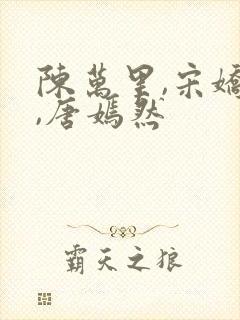 陳萬里,宋嬌
,唐嫣然
霸天之狼